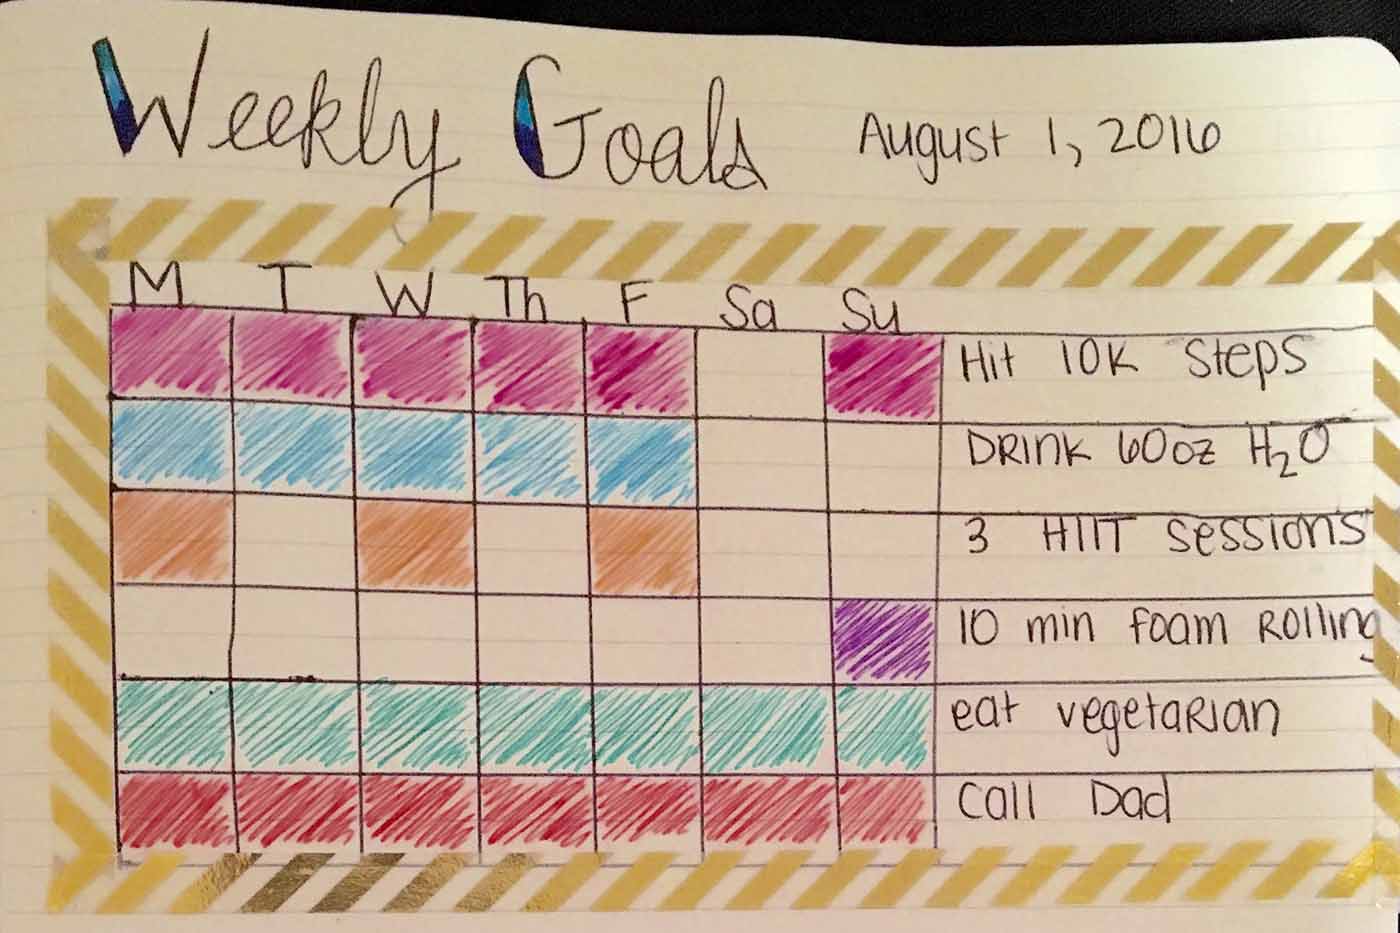 Weekly Goals August 1, 2016
M T W Th F Sa Su
Hit 10K Steps
DRINK 60oz H₂O
3 HIIT SESSIONS
10 min foam ROlling
eat vegetaRian
Call Dad